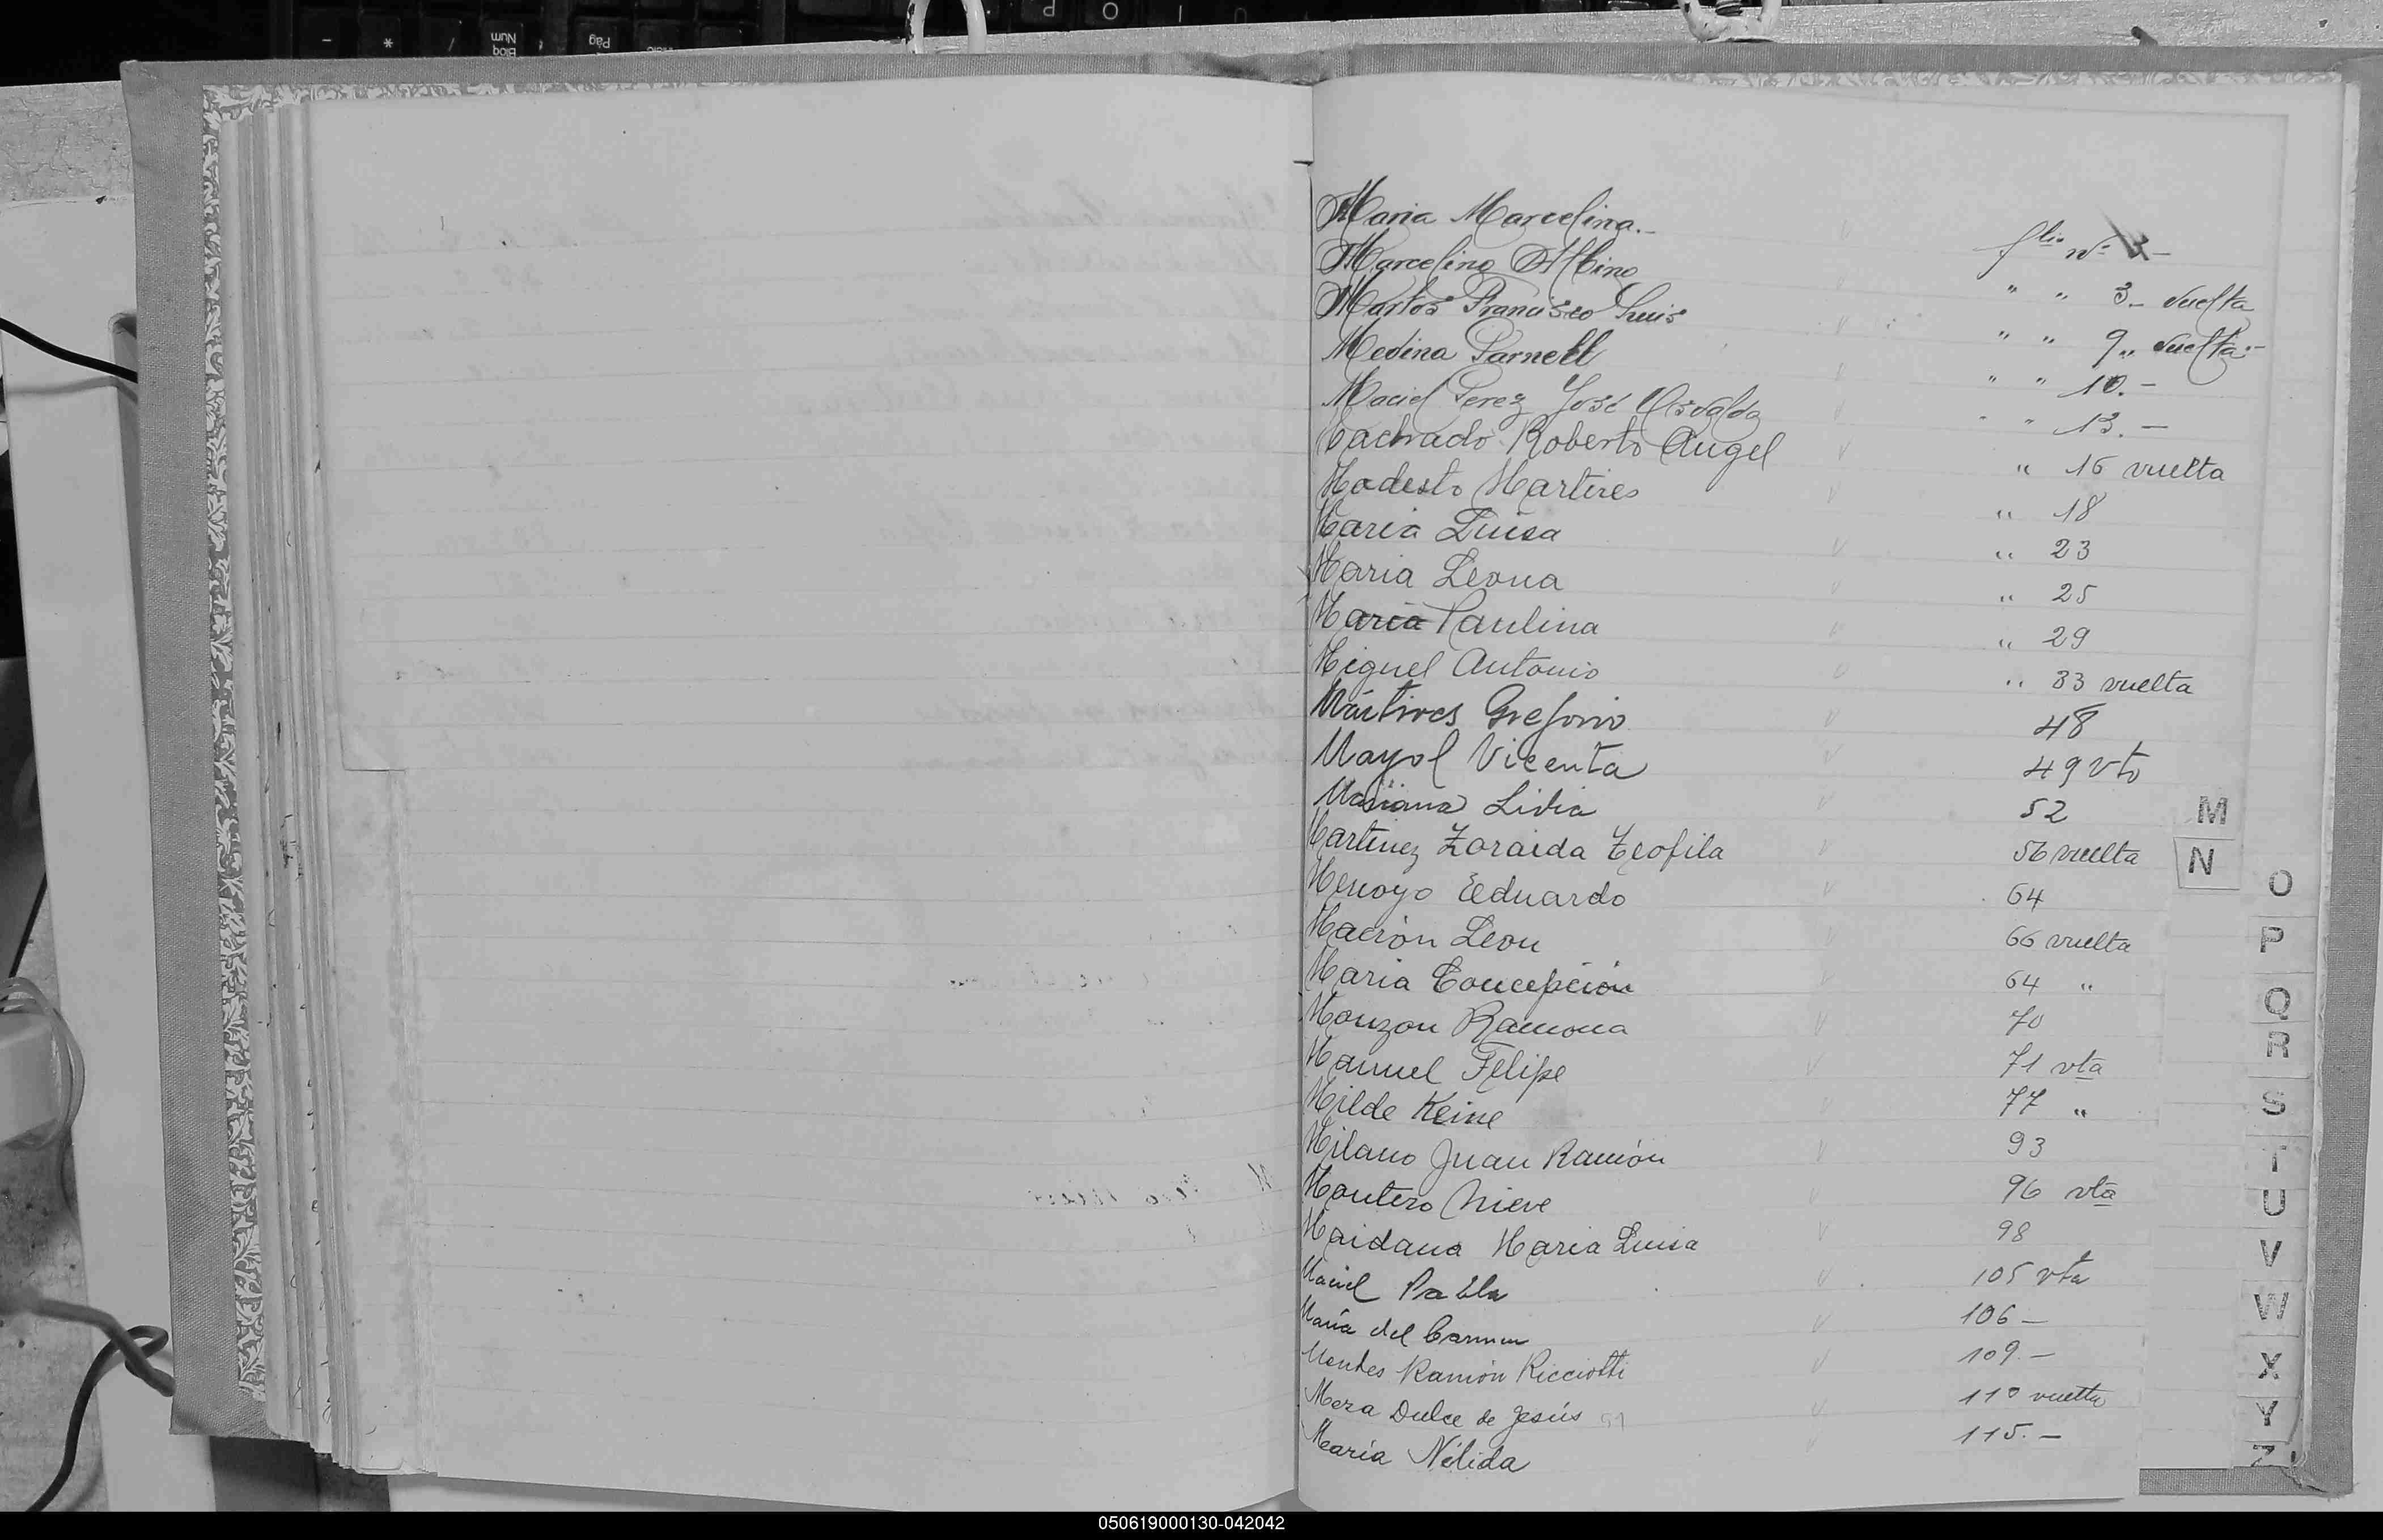 Maria Marcelina.- folio Nº 3-
Marcelino Albino " " 3- vuelta
Martos Francisco Luis " " 9,, vuelta-
Medina Parnell " " 10.-
Maciel Perez José Osvaldo " " 13.-
Machado Roberto Angel " 16 vuelta
Modesto Martires " 18
Maria Luisa " 23
Maria Leona " 25
Maria Paulina " 29
Miguel Antonio " 33 vuelta
Mártires Gregorio 48
Mayol Vicenta 49 vto
Mariana Lidia 52
Martinez Zoraida Teofila 56 vuelta
Menoyo Eduardo 64
Macron Leon 66 vuelta
Maria Concepción 64 "
Monzon Ramona 70
Manuel Felipe 71 vta
Milde Keine 77 "
Milano Juan Ramón 93
Montero Nieve 96 vta
Maidana Maria Luisa 98
Maciel Pabla 105 vta
María del Carmen 106-
Montes Ramón Ricciotti 109.-
Meza Dulce de Jesús 110 vuelta
María Nélida 115.-
M
N
O
P
Q
R
S
T
U
V
W
X
Y
Z
050619000130-042042